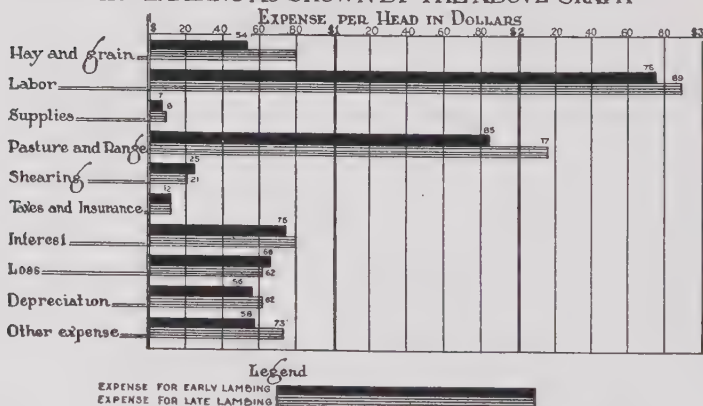 EXPENSE PER HEAD IN DOLLARS
$ 20 40 60 80 $1 20 40 60 80 $2 20 40 60 80 $3
Hay and grain 54
Labor 75
89
Supplies 7
8
Pasture and Range 85
17
Shearing 25
21
Taxes and Insurance 12
Interest 75
Loss 68
62
Depreciation 56
62
Other expense 58
73
Legend
EXPENSE FOR EARLY LAMBING
EXPENSE FOR LATE LAMBING